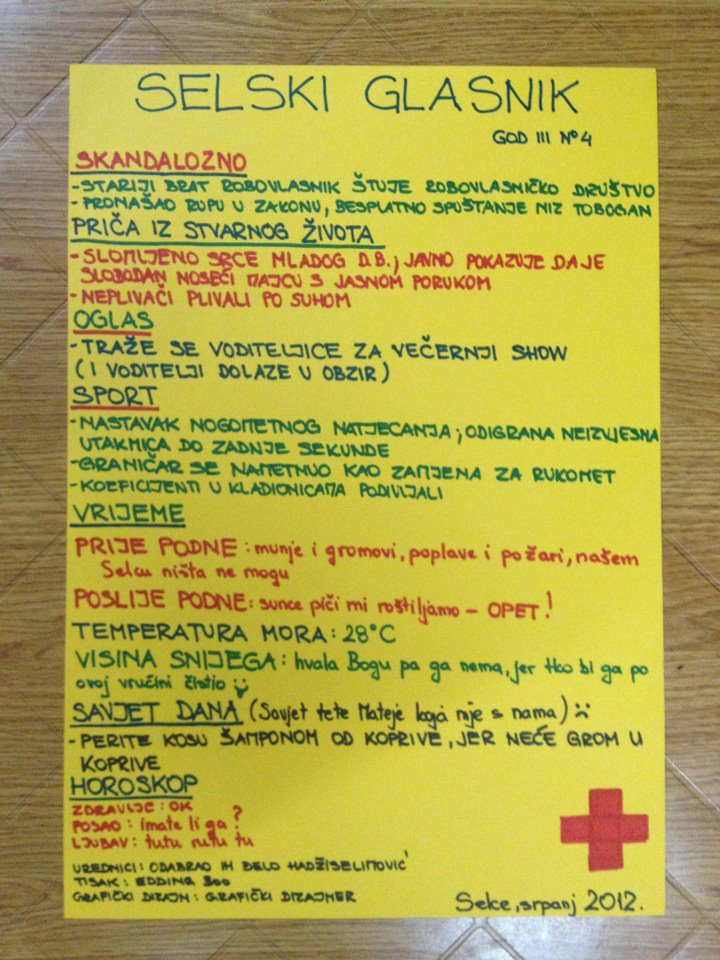 SELSKI GLASNIK
GOD III Nº4
SKANDALOZNO
-STARIJI BRAT ROBOVLASNIK ŠTUJE ROBOVLASNIČKO DRUŠTVO
-PRONAŠAO RUPU U ZAKONU, BESPLATNO SPUŠTANJE NIZ TOBOGAN
PRIČA IZ STVARNOG ŽIVOTA
-SLOMLJENO SRCE MLADOG D.B.; JAVNO POKAZUJE DA JE
SLOBODAN NOSEĆI MAJCU S JASNOM PORUKOM
-NEPLIVAČI PLIVALI PO SUHOM
OGLAS
-TRAŽE SE VODITELJICE ZA VEČERNJI SHOW
(I VODITELJI DOLAZE U OBZIR)
SPORT
-NASTAVAK NOGOMETNOG NATJECANJA; ODIGRANA NEIZVJESNA
UTAKMICA DO ZADNJE SEKUNDE
-GRANIČAR SE NAMETNUO KAO ZAMJENA ZA RUKOMET
-KOEFICIJENTI U KLADIONICAMA PODIVLJALI
VRIJEME
PRIJE PODNE: munje i gromovi, poplave i požari, našem
Selcu ništa ne mogu
POSLIJE PODNE: sunce piči mi roštiljamo - OPET!
TEMPERATURA MORA: 28°C
VISINA SNIJEGA: hvala Bogu pa ga nema, jer tko bi ga po
ovoj vrućini čistio
SAVJET DANA (Savjet tete Mateje koja nije s nama)
-PERITE KOSU ŠAMPONOM OD KOPRIVE, JER NEĆE GROM U
KOPRIVE
HOROSKOP
ZDRAVLJE: OK
POSAO: imate li ga?
LJUBAV: tutu rutu tu
UREDNICI: ODABRAO IH DELO HADŽISELIMOVIĆ
TISAK: EDDING 300
GRAFIČKI DIZAJN: GRAFIČKI DIZAJNER
Selce, srpanj 2012.